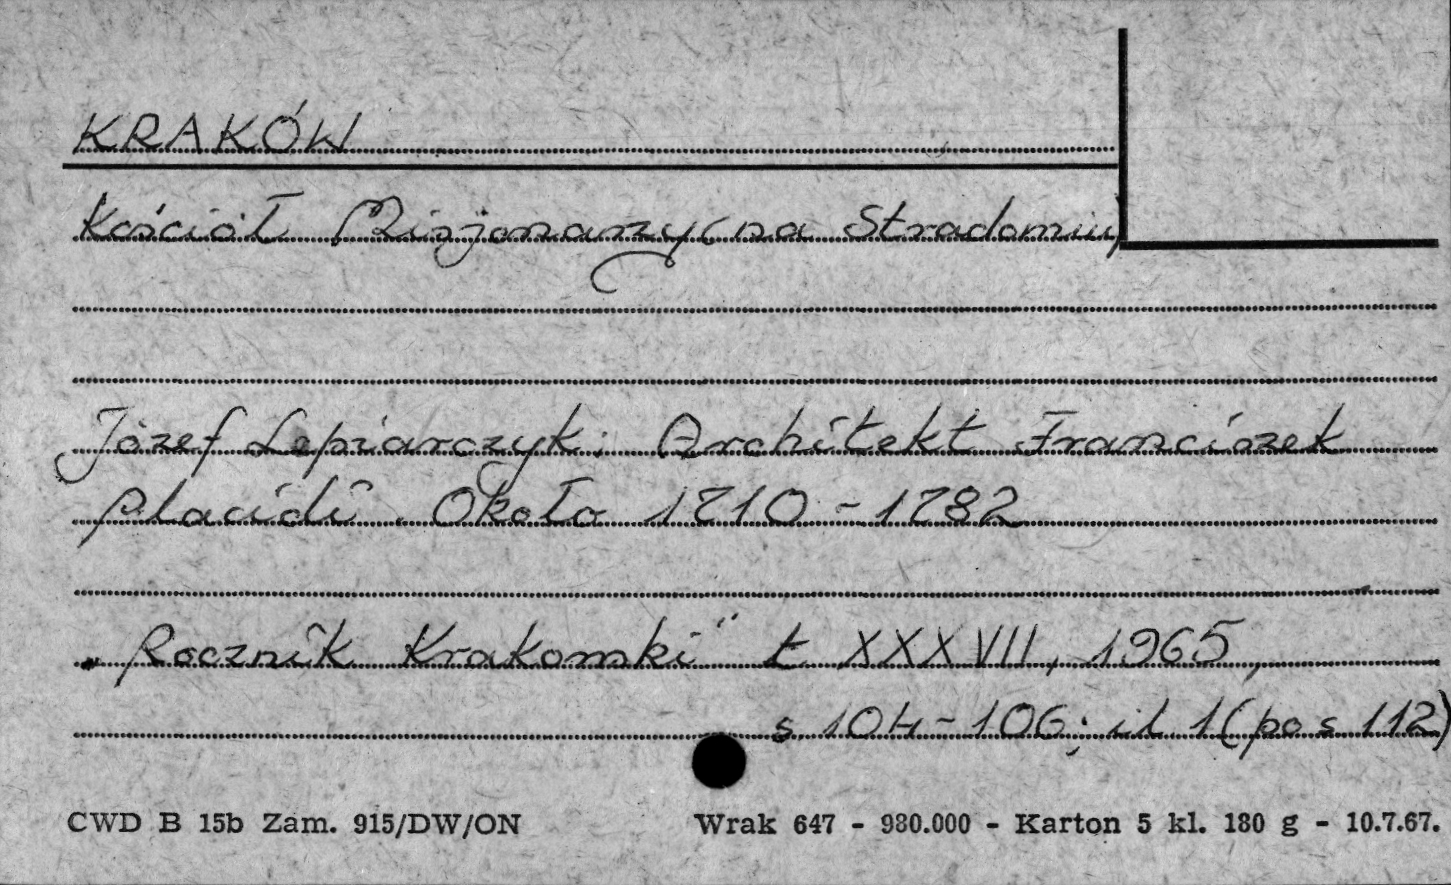 KRAKÓW
Kościół Misjonarzy (na Stradomiu)
Józef Lepiarczyk: Architekt Franciszek
Placidi. Około 1710-1782
„Rocznik Krakowski" t XXXVII, 1965,
s. 104-106; il 1 (po s 112)
CWD B 15b Zam. 915/DW/ON Wrak 647 - 980.000 - Karton 5 kl. 180 g - 10.7.67.